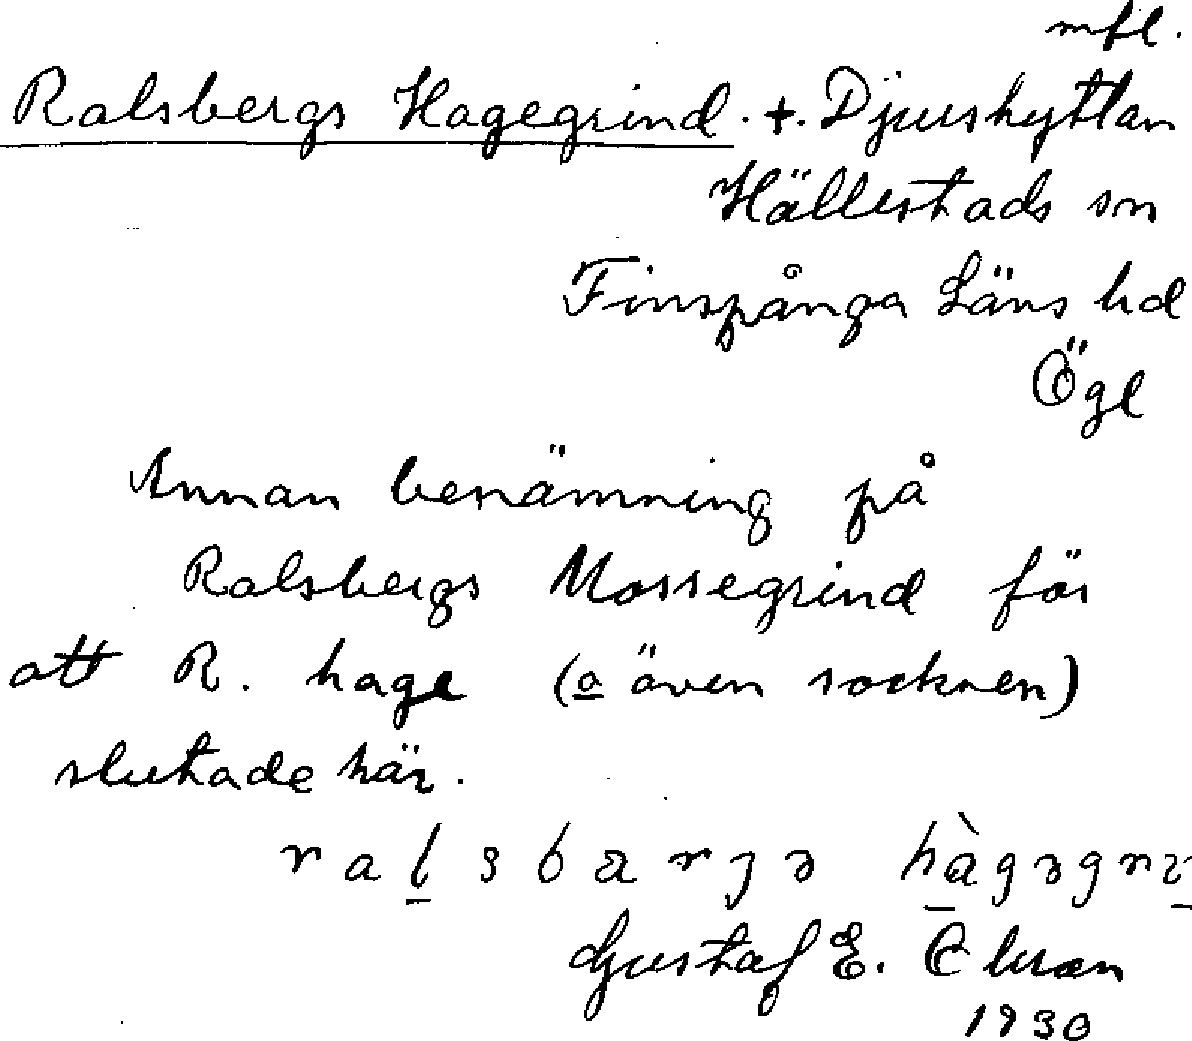 mfl.
Ralsbergs Hagegrind. +. Djurshyttan
Hällestads sn
Finspånga Läns hd
Ögl
Annan benämning på
Ralsbergs Mossegrind för
att R. hage (o även socknen)
slutade här.
Gustaf E.
1930